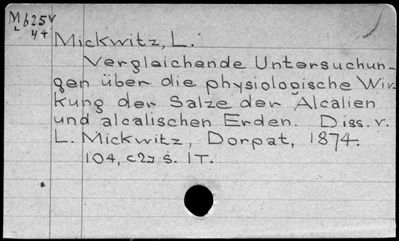 Mb25v
L
y+
Mickwitz, L.
Vergleichende Untersuchun-
gen über die physiologische Wir-
kung der Salze der Alcalien
und alcalischen Erden. Diss. v.
L. Mickwitz, Dorpat, 1874.
104, S. 1T.